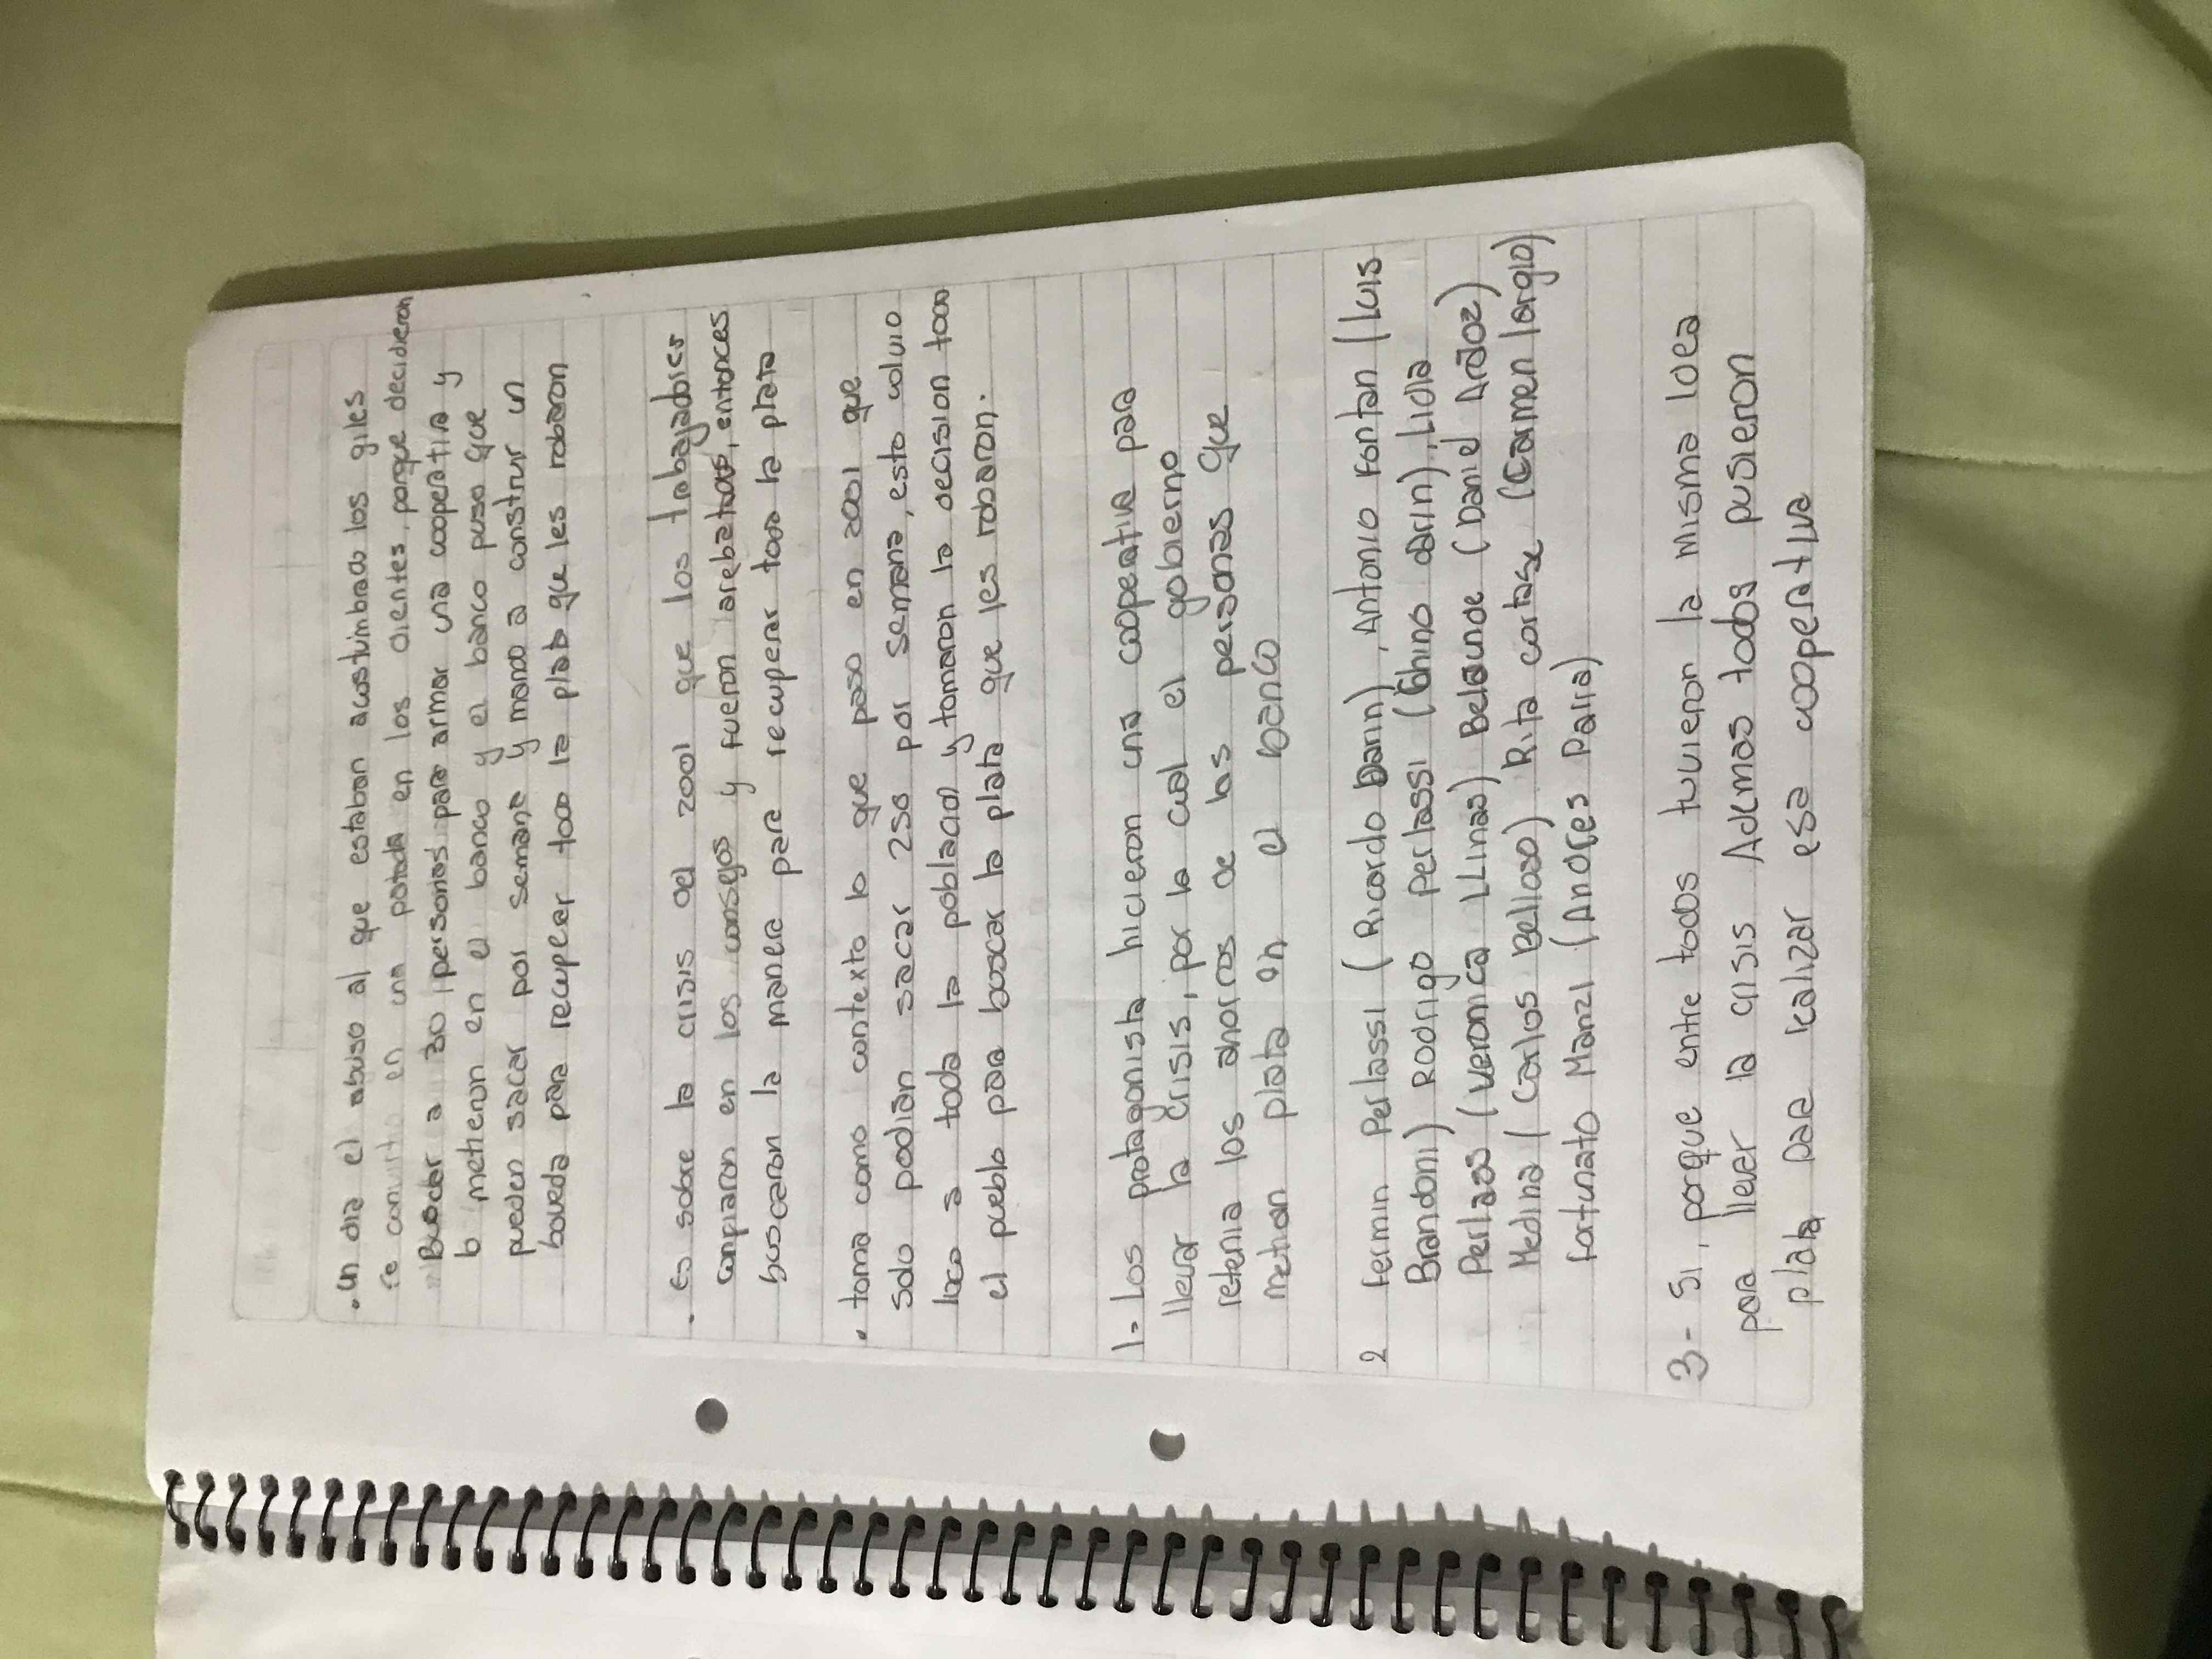 . Un dia el abuso al que estaban acostumbrado los giles
se convirtio en una patada en los dientes, porque decidieron
Buscar a 30 personas para armar una cooperativa y
lo metieron en el banco y el banco puso que
pueden sacar por semana y mando a construir un
boveda para recuperar toda la plata que les robaron
. Es sobre la crisis del 2001 que los trabajadores
confiaron en los consejos y fueron arebatados, entonces
buscaron la manera para recuperar toda la plata
. toma como contexto lo que paso en 2001 que
solo podian sacar 250 por semana, esto volvio
loco a toda la poblacion y tomaron la decision todo
el pueblo para buscar la plata que les robaron.
1- Los protagonista hicieron una cooperativa para
llevar la crisis, por la cual el gobierno
retenia los ahorros de las personas que
metian plata en el banco
2 Fermin Perlassi (Ricardo Darin), Antonio Fontan (Luis
Brandoni) Rodrigo Perlassi (Chino darin), Lidia
Perlassi (Veronica LLinas) Belaunde (Daniel Aráoz)
Medina (Carlos Belloso) Rita cortase (Carmen largio)
Fortunato Manzi (Andres Parra)
3- Si, porque entre todos tuvieron la misma idea
para llever la crisis Ademas todos pusieron
plata para realizar esa cooperativa